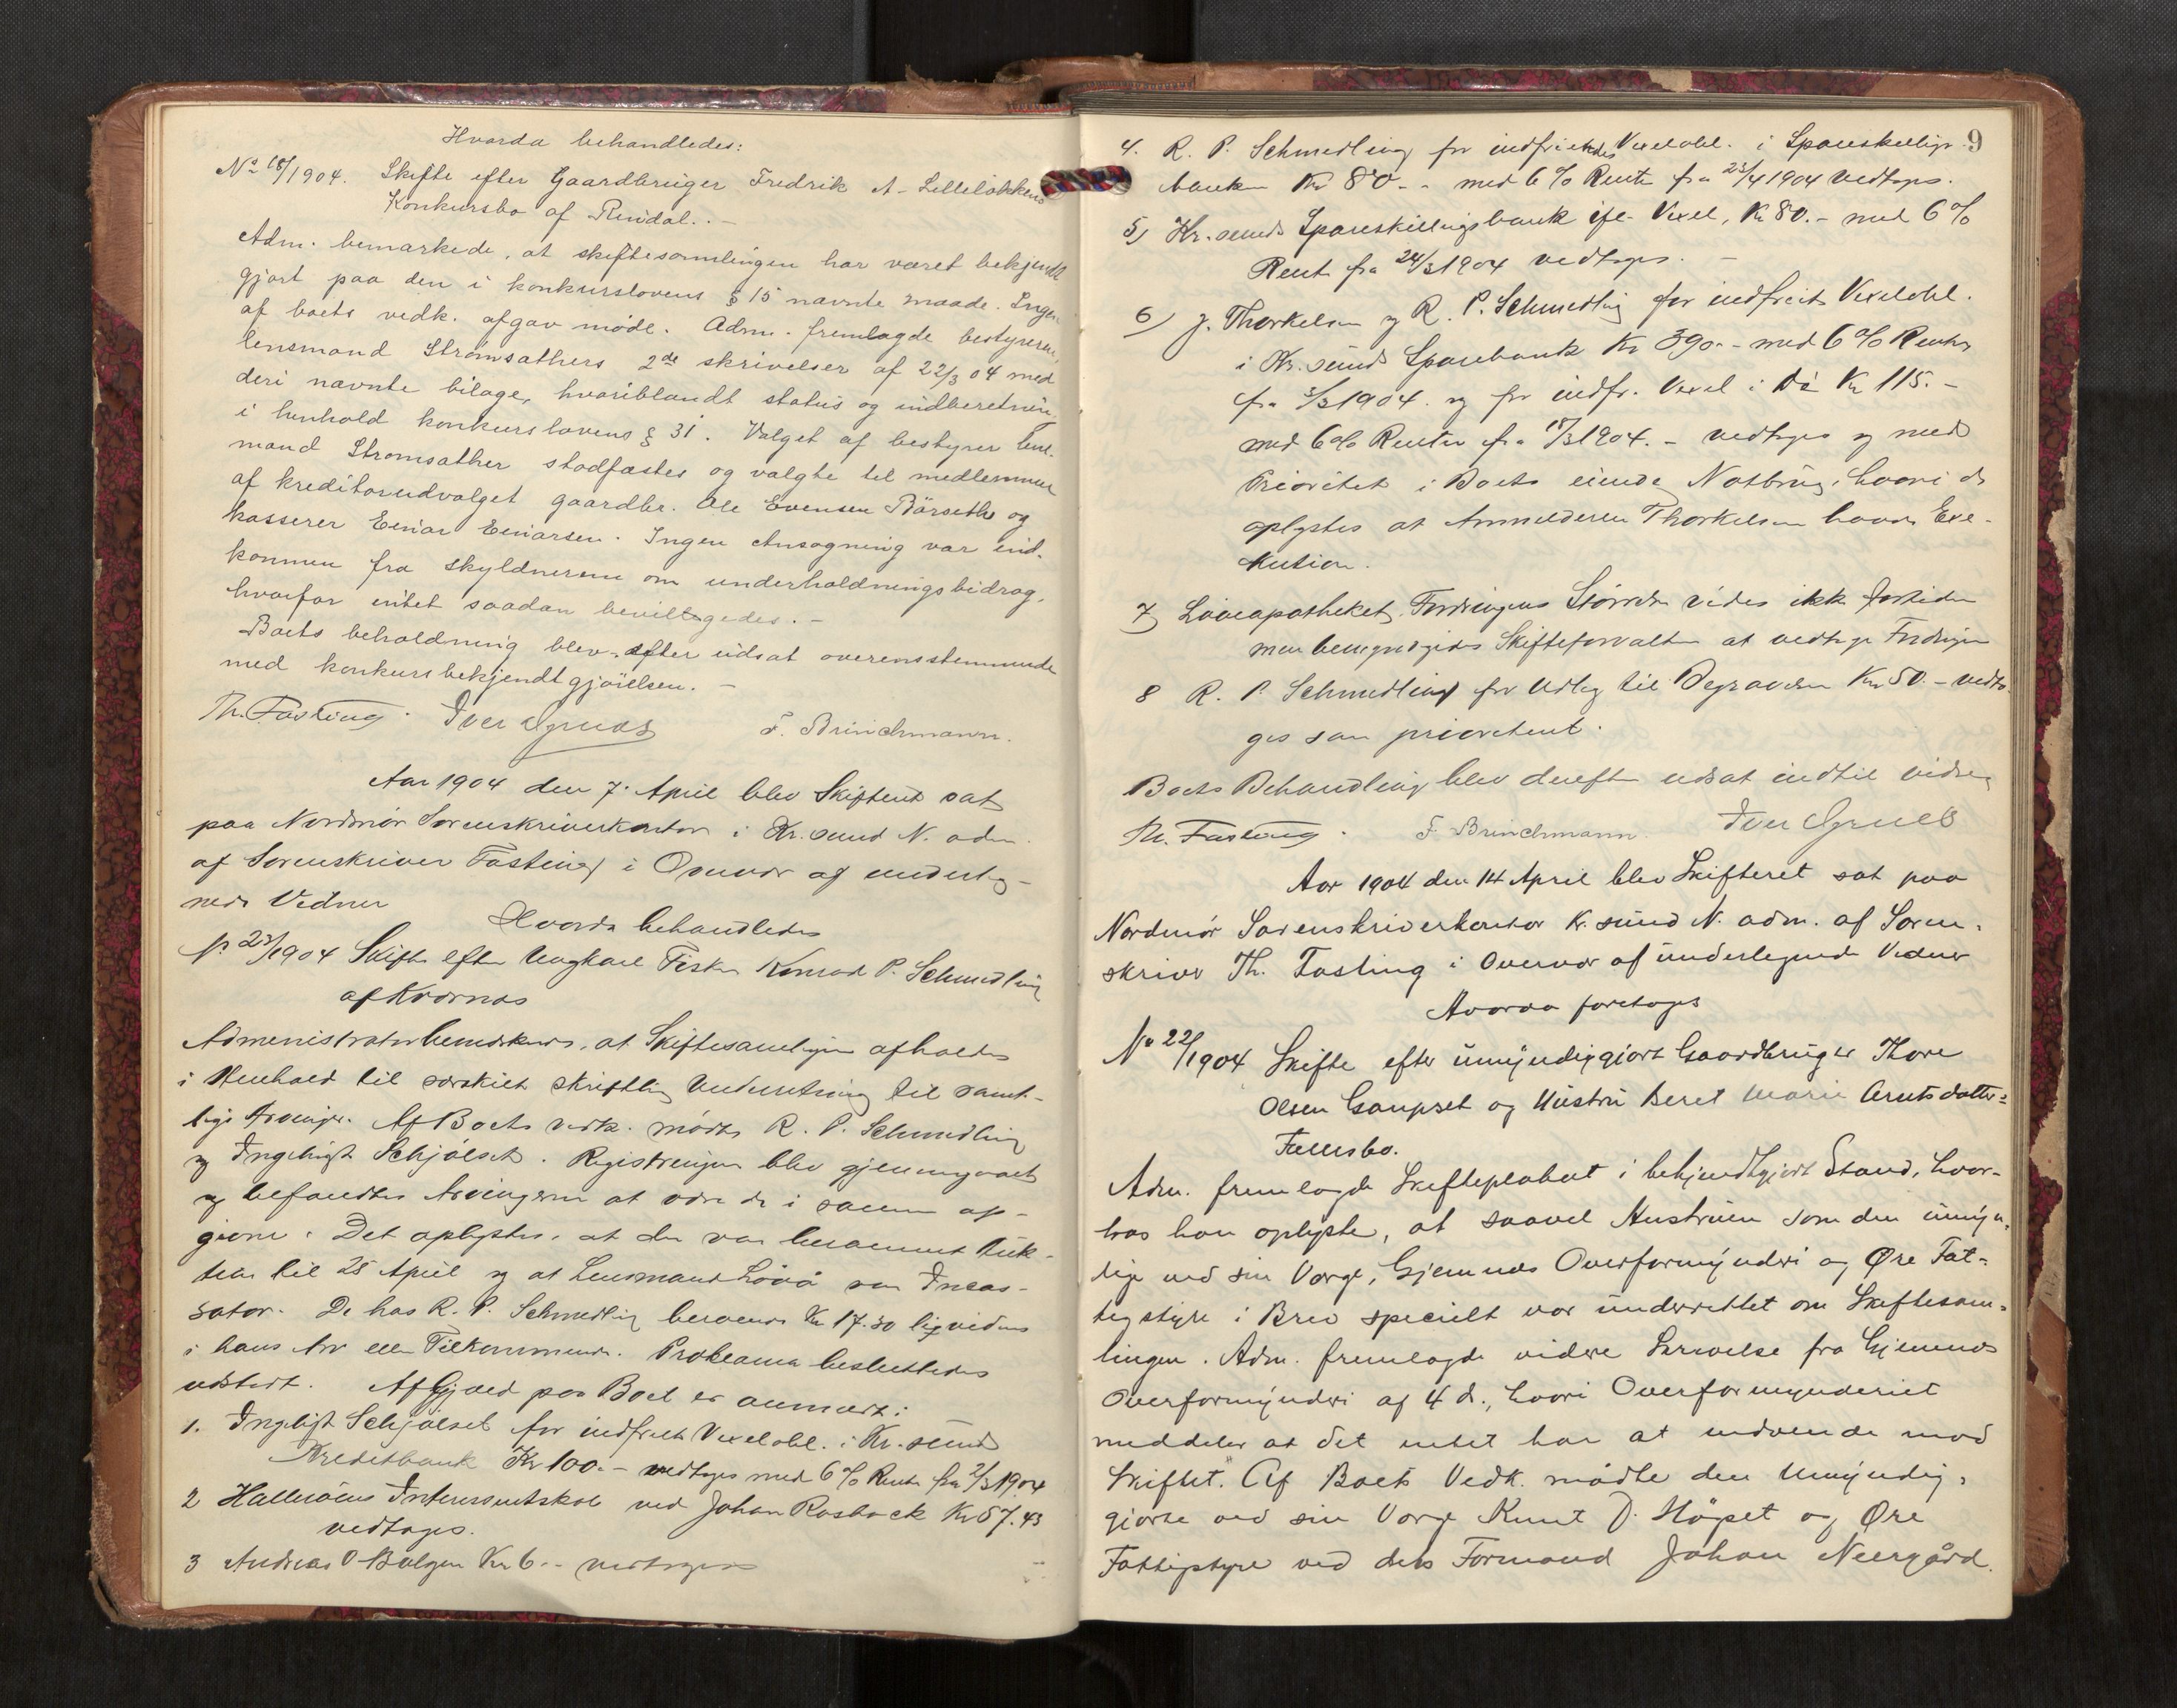 Hvorda behandledes:
No 18/1904. Skifte efter Gaardbruger Fredrik A. Lilleløkkens
Konkursbo af Rindal. –
Adm. bemærkede, at skiftesamlingen har været bekjendt
gjort paa den i konkurslovens § 15 nævnte maade. Ingen
af boets vedk. afgav møde. Adm. fremlagde bestyreren,
lensmand Strømsæthers 2de skrivelser af 22/3 04 med
deri nævnte bilage, hvoriblandt status og indberetnin
i henhold konkurslovens § 31. Valget af bestyrer lens-
mand Strømsæther stadfæstes og valgte til medlemmer
af kreditorudvalget gaardbr. Ole Evensen Bärseth og
kasserer Einar Einarsen. Ingen Ansøgning var ind-
kommen fra skyldneren om underholdningsbidrag,
hvorfor intet saadan bevilgedes. –
Boets beholdning blev efter udsat overensstemmende
med konkursbekjendtgjørelsen. –
Th. Fasting. Iver Grües F. Brinchmann.
Aar 1904 den 7. April blev Skifteret sat
paa Nordmør Sorenskriverkontor i Kr.sund N. adm.
af Sorenskriver Fasting i Overvær af underteg-
nede Vidner
Hvorda behandledes
No 23/1904 Skifte efter Ungkarl Fisker Konrad P. Schmedling
af Kvernæs
Administrator bemærkede, at Skiftesamlingen afholdes
i Henhold til særskilt skriftlig Underretning til samt-
lige Arvinger. Af Boets vedk. mødte R. P. Schmedling
og Ingebrigt Schjølset. Registreringen blev gjennemgaaet
og befandtes Arvingerne at være de i samme op-
givne. Det oplystes, at der var berammet Auk-
tion til 25 April og at Lensmand Löva var Incas-
sator. De hos R. P. Schmedling beroende Kr 17.30 ligvideres
i hans Arv eller Tilkommende. Proklama besluttedes
udstedt. Af Gjæld paa Boet er anmeldt:
1. Ingebrigt Schjølset for indfriet Vexelobl. i Kr.sunds
Kreditbank Kr 100.- vedtages med 6% Rente fra 2/3 1904
2 Interessentskab ved Johan Rosback Kr 57.43
vedtages.
3 Andreas O Bolgen Kr 6.- vedtages
9
4. R. P. Schmedling for indfriet Vexelobl. i Spareskillings-
banken Kr 80.- med 6% Rente fra 23/4 1904 vedtages.
5) Kr.sunds Spareskillingsbank ifl. Vexel, Kr 80.- med 6%
Rente fra 24/3 1904 vedtages. –
6) J. Thorkelsen og R. P. Schmedling for indfriet Vexelobl.
i Kr.sunds Sparebank Kr 390.- med 6% Renter
fra 3/3 1904. og for indfr. Vexel i Do Kr 115.-
med 6% Renter fra 18/3 1904. – vedtages og med
Prioritet i Boets eiende Notbrug, hvori de
oplystes at Anmelderen Thorkelsen havde Exe-
kution.
7) Løveapotheket, Fordringens Størrelse vides ikke for tiden
men bemyndiges Skifteforvalteren at vedtage Fordringen
8 R. P. Schmedling for Udlæg til Begravelsen Kr 50.- vedta-
ges som prioriteret.
Boets Behandling blev derefter udsat indtil videre
Th. Fasting. F. Brinchmann. Iver Grües
Aar 1904 den 14 April blev Skifteret sat paa
Nordmør Sorenskriverkontor Kr.sund N. adm. af Soren-
skriver Th. Fasting i Overvær af undertegnede Vidner
Hvorda foretoges
No 22/1904 Skifte efter umyndiggjort Gaardbruger Thore
Olsen Gaupset og Hustru Beret Marie Arntsdatter=
Fællesbo.
Adm. fremlagde Skifteplakat i bekjendtgjort Stand, hvor-
hos han oplyste, at saavel Hustruen som den umyn-
dige ved sin Værge, Gjemnæs Overformynderi og Øre Fat=
tigstyre i Brev specielt var underrettet om Skiftesam-
lingen. Adm. fremlagde videre Skrivelse fra Gjemnæs
Overformynderi af 4 d., hvori Overformynderiet
meddeler at det intet har at indvende mod
Skiftet. Af Boets Vedk. mødte den Umyndig-
gjorte ved sin Værge Knut D. Høgset og Øre
Fattigstyre ved dets Formand Johan Neergård.